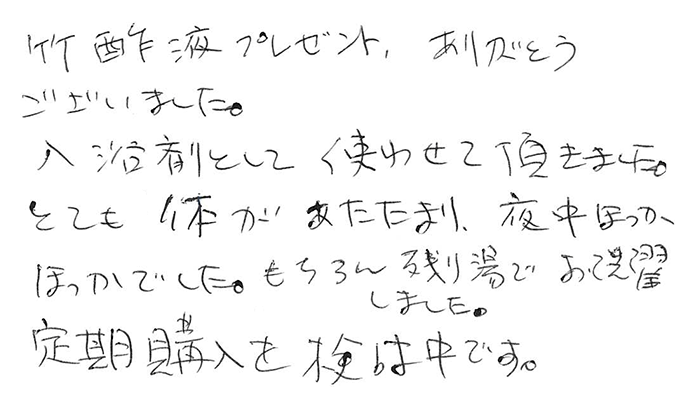 竹酢液プレゼント、ありがとう
ございました。
入浴剤として使わせて頂きました。
とても体があたたまり、夜中ほっか
ほっかでした。もちろん残り湯でお洗濯
しました。
定期購入を検討中です。